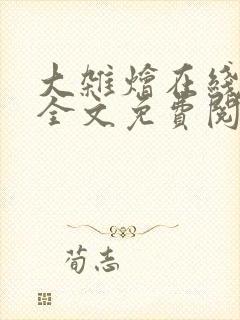 大雑燴在綫
全文免費閱
荀志